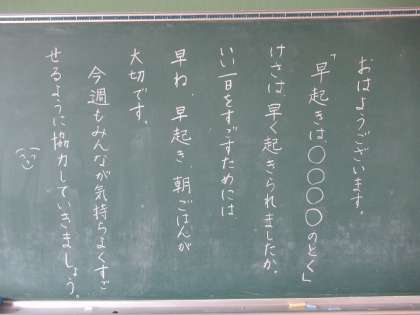 おはようございます。
「早起きは、〇〇〇〇のとく」
けさは、早く起きられましたか。
いい一日をすごすためには、
早ね、早起き、朝ごはんが
大切です。
今週もみんなが気持ちよくすご
せるように協力していきましょう。